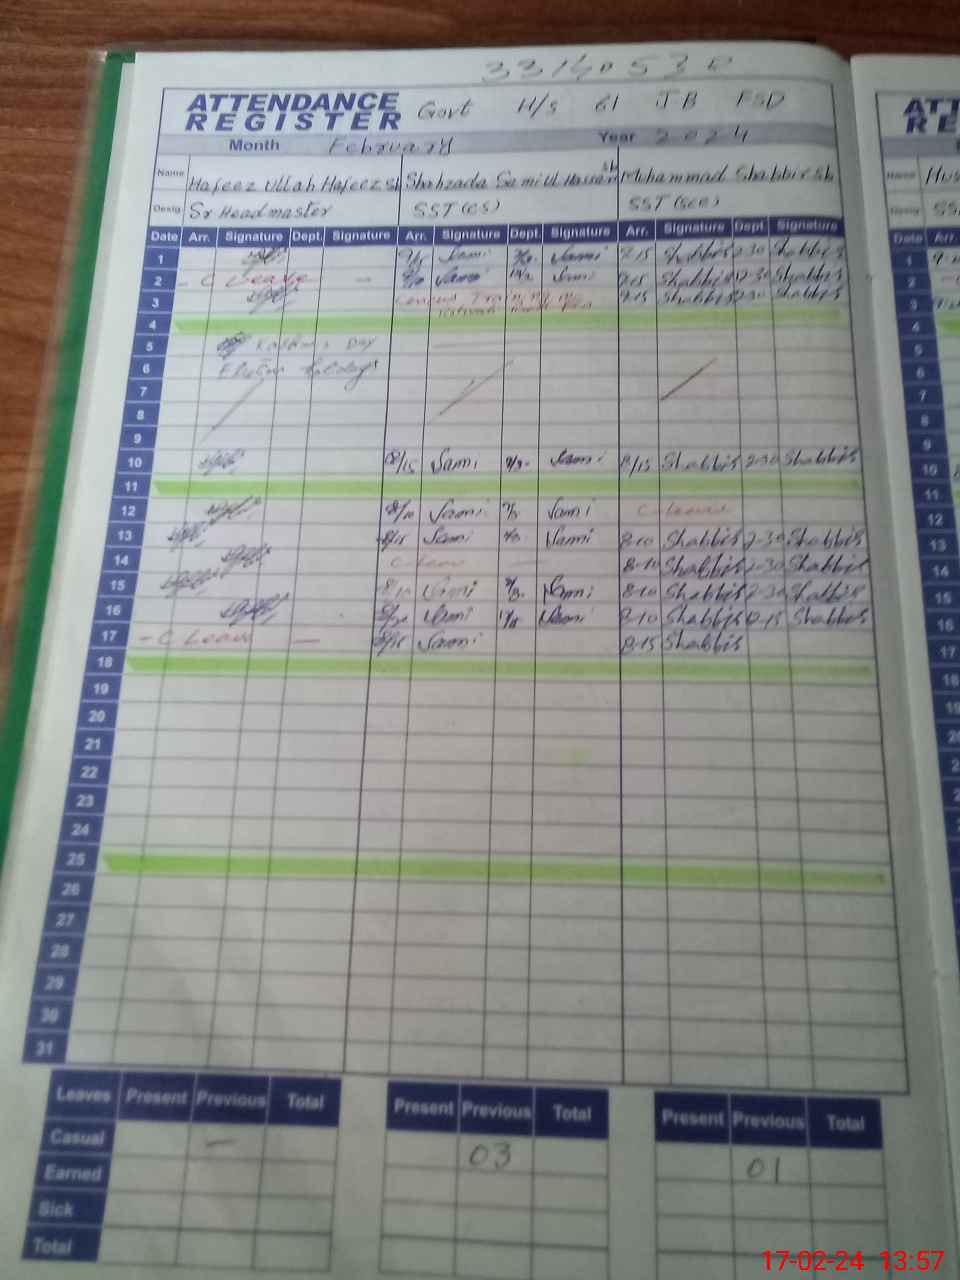 33140530
ATTENDANCE REGISTER Govt H/S 61 JB FSD
Month February Year 2024
Name Hafeez Ullah Hafeez Sb Shahzada Sami Ul Hassan Sb Muhammad Shabbir Sb
Desig. Sr Headmaster SST (CS) SST (Sci)
Date Arr. Signature Dept. Signature Arr. Signature Dept. Signature Arr. Signature Dept. Signature
1 Sami Sami 8-15 Shabbir 2-30 Shabbir
2 - C Leave - Sami Sami 8-15 Shabbir 12-30 Shabbir
3 8-15 Shabbir 2-30 Shabbir
4
5 Kashmir Day
6 Election holidays
7
8
9
10 8/15 Sami Sami 8/15 Shabbir 2-30 Shabbir
11
12 8/10 Sami Sami C-leave
13 8/15 Sami Sami 8-10 Shabbir 2-30 Shabbir
14 C-leave - 8-10 Shabbir 2-30 Shabbir
15 8/10 Sami Sami 8-10 Shabbir 2-30 Shabbir
16 Sami Sami 8-10 Shabbir 12-15 Shabbir
17 - C Leave - 8/15 Sami 8-15 Shabbir
18
19
20
21
22
23
24
25
26
27
28
29
30
31
Leaves Present Previous Total Present Previous Total Present Previous Total
Casual - 03 01
Earned
Sick
Total
17-02-24 13:57